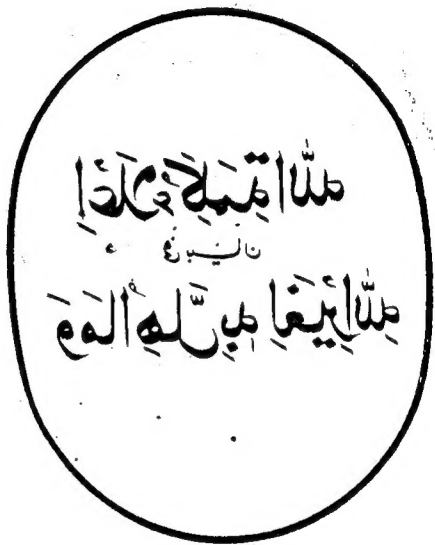 اِعْلَاءِ كَلِمَةِ اللّٰه
فی بیان
وَمَا اُهِلَّ بِهٖ لِغَيْرِ اللّٰهِ